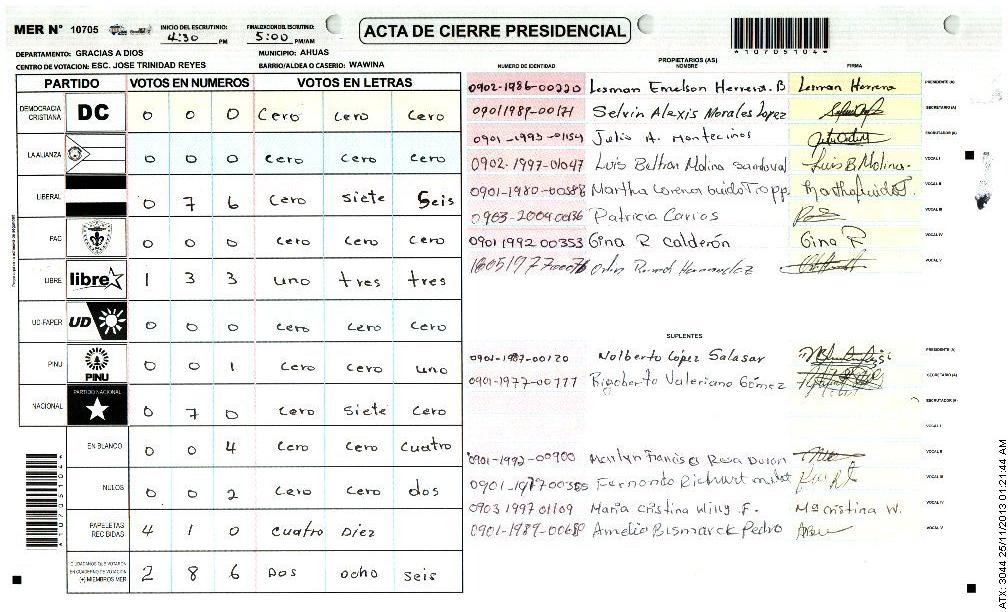 MER N° 10705
INICIO DEL ESCRUTINIO: 4:30 PM
FINALIZACION DEL ESCRUTINIO: 5:00 PM/AM
ACTA DE CIERRE PRESIDENCIAL
*10705104*
DEPARTAMENTO: GRACIAS A DIOS
MUNICIPIO: AHUAS
CENTRO DE VOTACION: ESC. JOSE TRINIDAD REYES
BARRIO/ALDEA O CASERIO: WAWINA
PARTIDO VOTOS EN NUMEROS VOTOS EN LETRAS
DEMOCRACIA CRISTIANA DC 0 0 0 Cero Cero Cero
LA ALIANZA 0 0 0 Cero Cero Cero
LIBERAL 0 7 6 Cero siete Seis
PAC 0 0 0 Cero Cero Cero
LIBRE libre 1 3 3 uno tres tres
UD-FAPER UD 0 0 0 Cero Cero Cero
PINU PINU 0 0 1 Cero Cero uno
NACIONAL PARTIDO NACIONAL 0 7 0 Cero Siete Cero
EN BLANCO 0 0 4 Cero Cero Cuatro
NULOS 0 0 2 Cero Cero dos
PAPELETAS RECIBIDAS 4 1 0 Cuatro Diez
CIUDADANOS QUE VOTARON EN CUADERNO DE VOTACION (+) MIEMBROS MER 2 8 6 Dos ocho seis
PROPIETARIOS (AS)
NUMERO DE IDENTIDAD NOMBRE FIRMA
0902-1986-00220 Lesman Emelson Herrera.B Lesman Herrera PRESIDENTE (A)
0901-1989-00171 Selvin Alexis Morales Lopez SECRETARIO (A)
0901-1993-00154 Julio A. Montecinos ESCRUTADOR (A)
0902-1997-01047 Luis Beltran Molina Sandoval Luis B Molina. VOCAL I
0901-1980-00388 Martha Lorena Guido Tropp VOCAL II
0903-2004 00136 Patricia Carlos VOCAL III
0901 1992 00353 Gina R Calderón Gina R VOCAL IV
Hernandez VOCAL V
SUPLENTES
0901-1987-00120 Nolberto López Salasar PRESIDENTE (A)
0901-1977-00777 Rigoberto Valeriano Gómez SECRETARIO (A)
ESCRUTADOR (A)
VOCAL I
0901-1992-00900 Marilyn Francis Rosa Duran VOCAL II
Fernando Richart VOCAL III
0903 1997 01109 Maria Cristina Willy .F. Mª Cristina W. VOCAL IV
0901-1989-00680 Amelio Bismarck Pedro VOCAL V
*10705104*
ATX: 3044 25/11/2013 01:21:44 AM